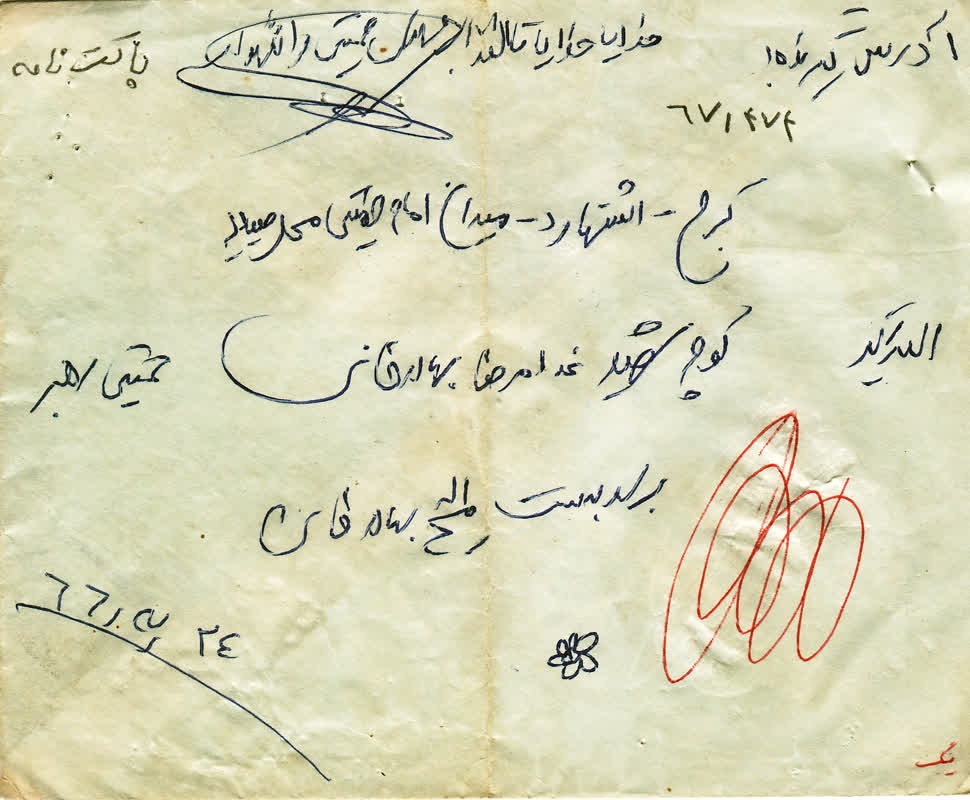 آدرس گیرنده:
خدایا خدایا تا انقلاب مهدی خمینی را نگهدار
پاکت نامه
۶۷/۴۷۴
کرج - اشتهارد - میدان امام خمینی محله صیادلیه
الله اکبر کوچه شهید غلامرضا بهادرخانی خمینی رهبر
برسد بدست بهادرخانی
۲٤ ۶۶
یک